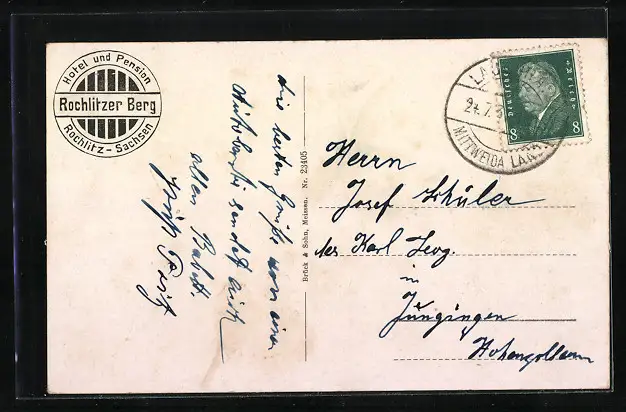 Hotel und Pension
Rochlitzer Berg
Rochlitz - Sachsen
die besten Grüße von einer
Autotour sendet Euch
allen Babet.
Brück & Sohn, Meissen. Nr. 23405
Deutsches Reich
8 8
24.7.3
MITTWEIDA LAND
Herrn
Josef Schüler
des Karl Leog.
in
Jungingen
Hohenzollern